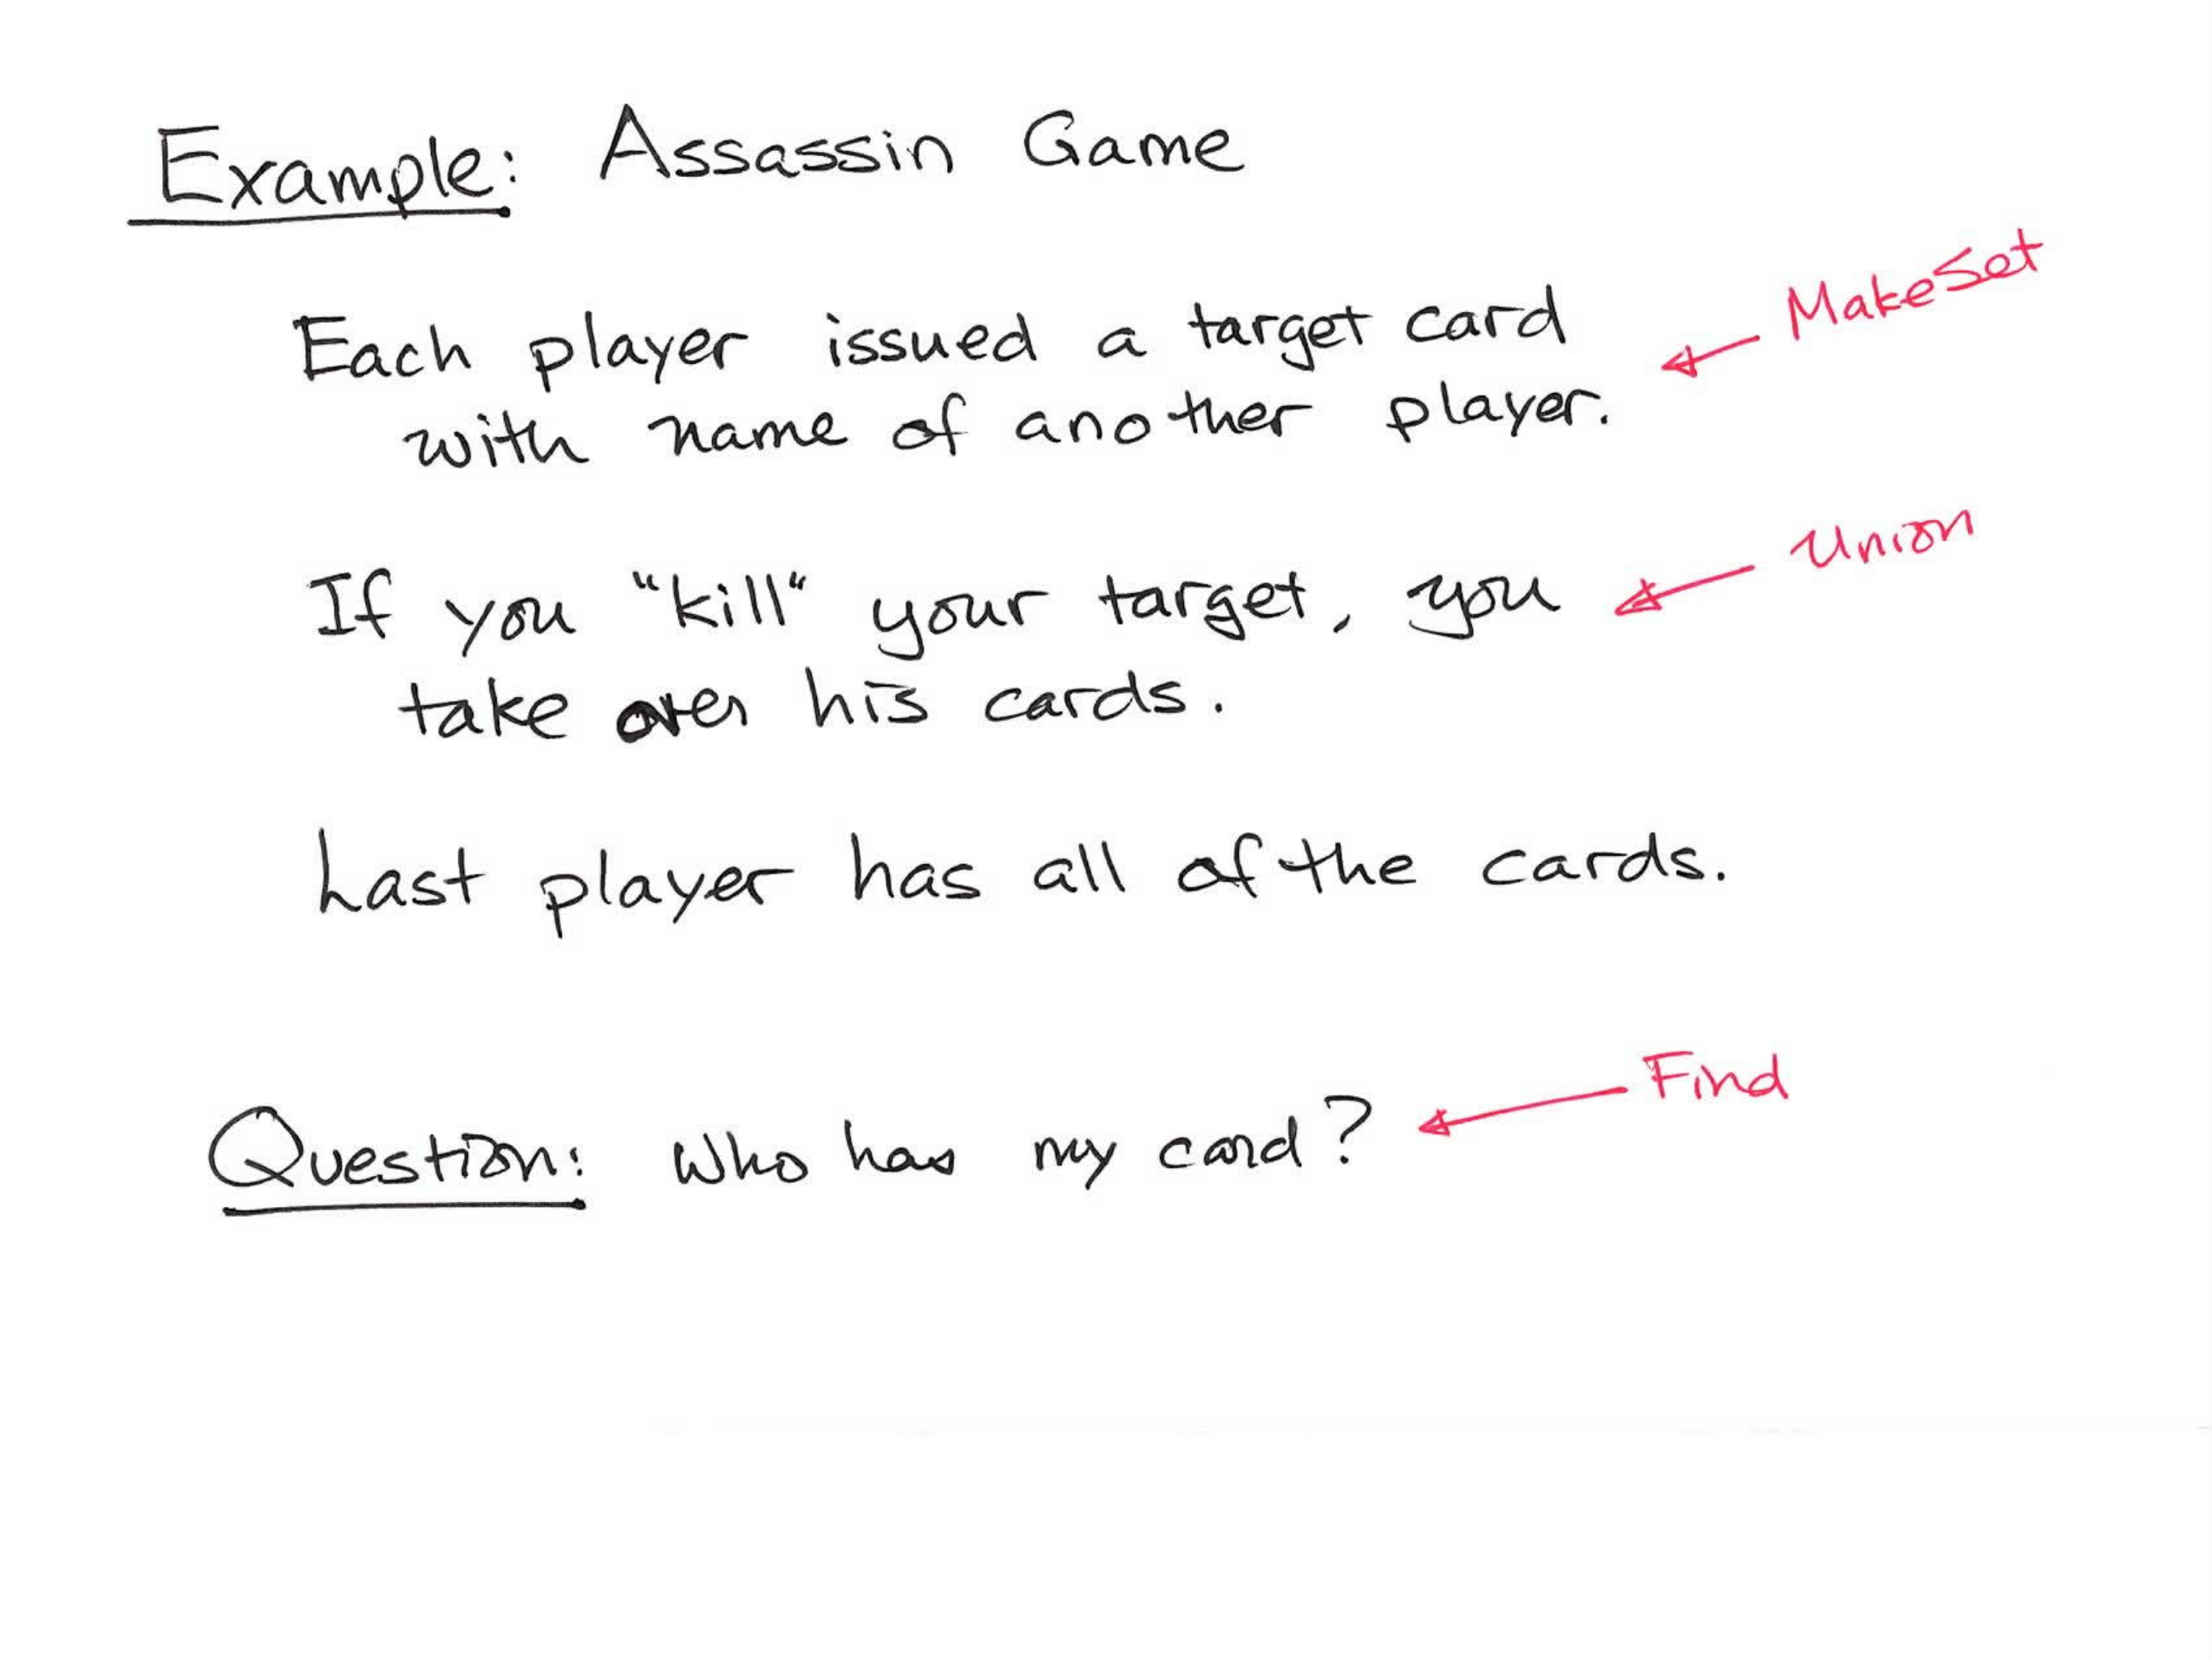 Example: Assassin Game
MakeSet
Each player issued a target card
with name of another player.
Union
If you "kill" your target, you
take over his cards.
Last player has all of the cards.
Find
Question: Who has my card?